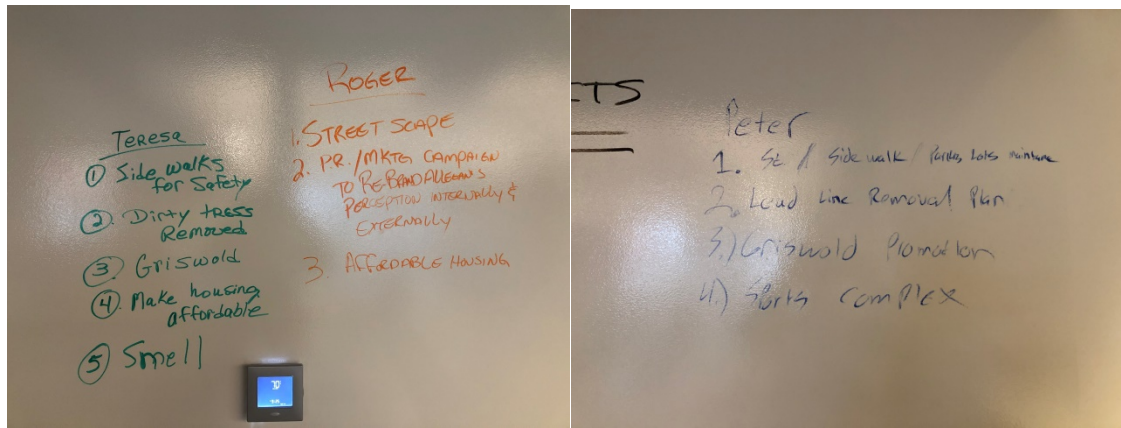 Teresa
① Sidewalks
for Safety
② Dirty tress
Removed
③ Griswold
④ Make housing
affordable
⑤ Smell
ROGER
1. STREET SCAPE
2. P.R./MKTG CAMPAIGN
TO RE-BRAND ALLEGANS
PERCEPTION INTERNALLY &
EXTERNALLY
3. AFFORDABLE HOUSING
CTS
Peter
1. St / Sidewalk / Parking Lots
2. Lead Line Removal Plan
3.) Griswold Promotion
4.) Sports complex